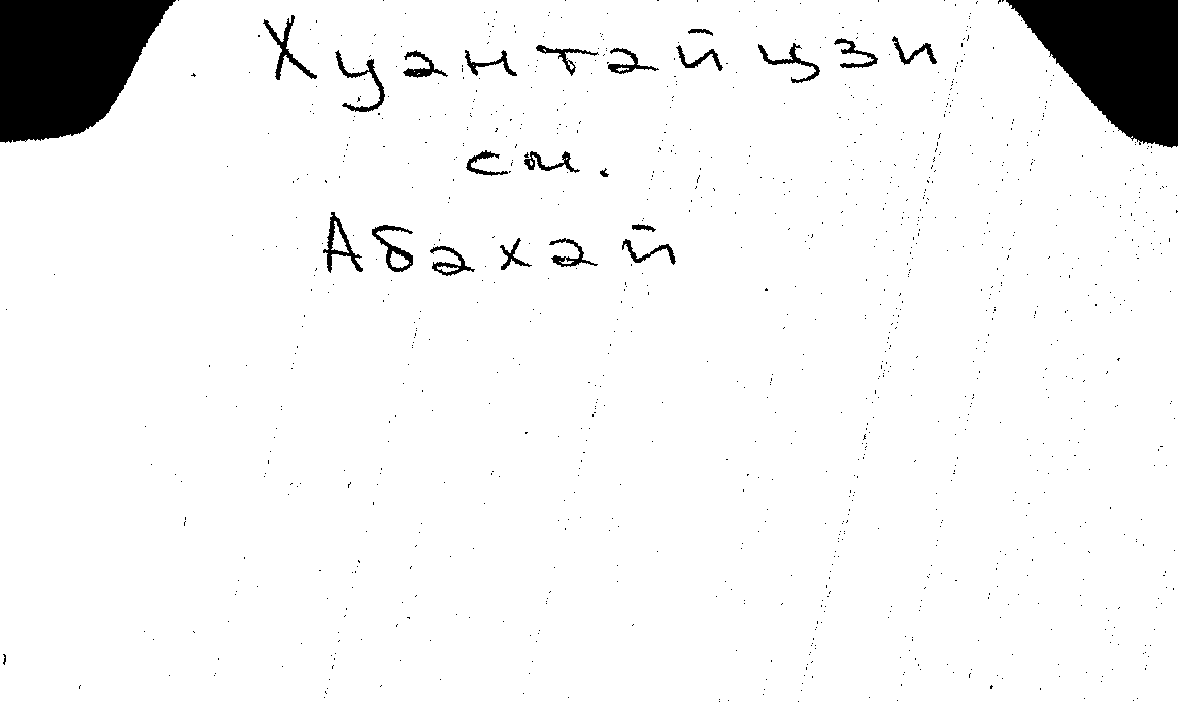 Хуантайцзи
см.
Абахай